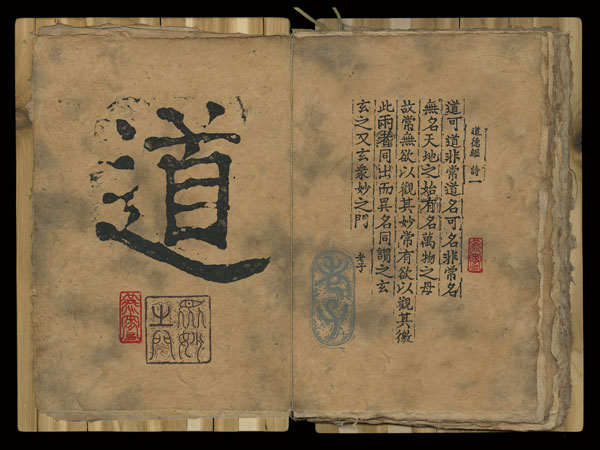 道
衆妙
之門
道德經 詩一
道可道非常道名可名非常名
無名天地之始有名萬物之母
故常無欲以觀其妙常有欲以觀其徼
此兩者同出而異名同謂之玄
玄之又玄衆妙之門
老子
老子